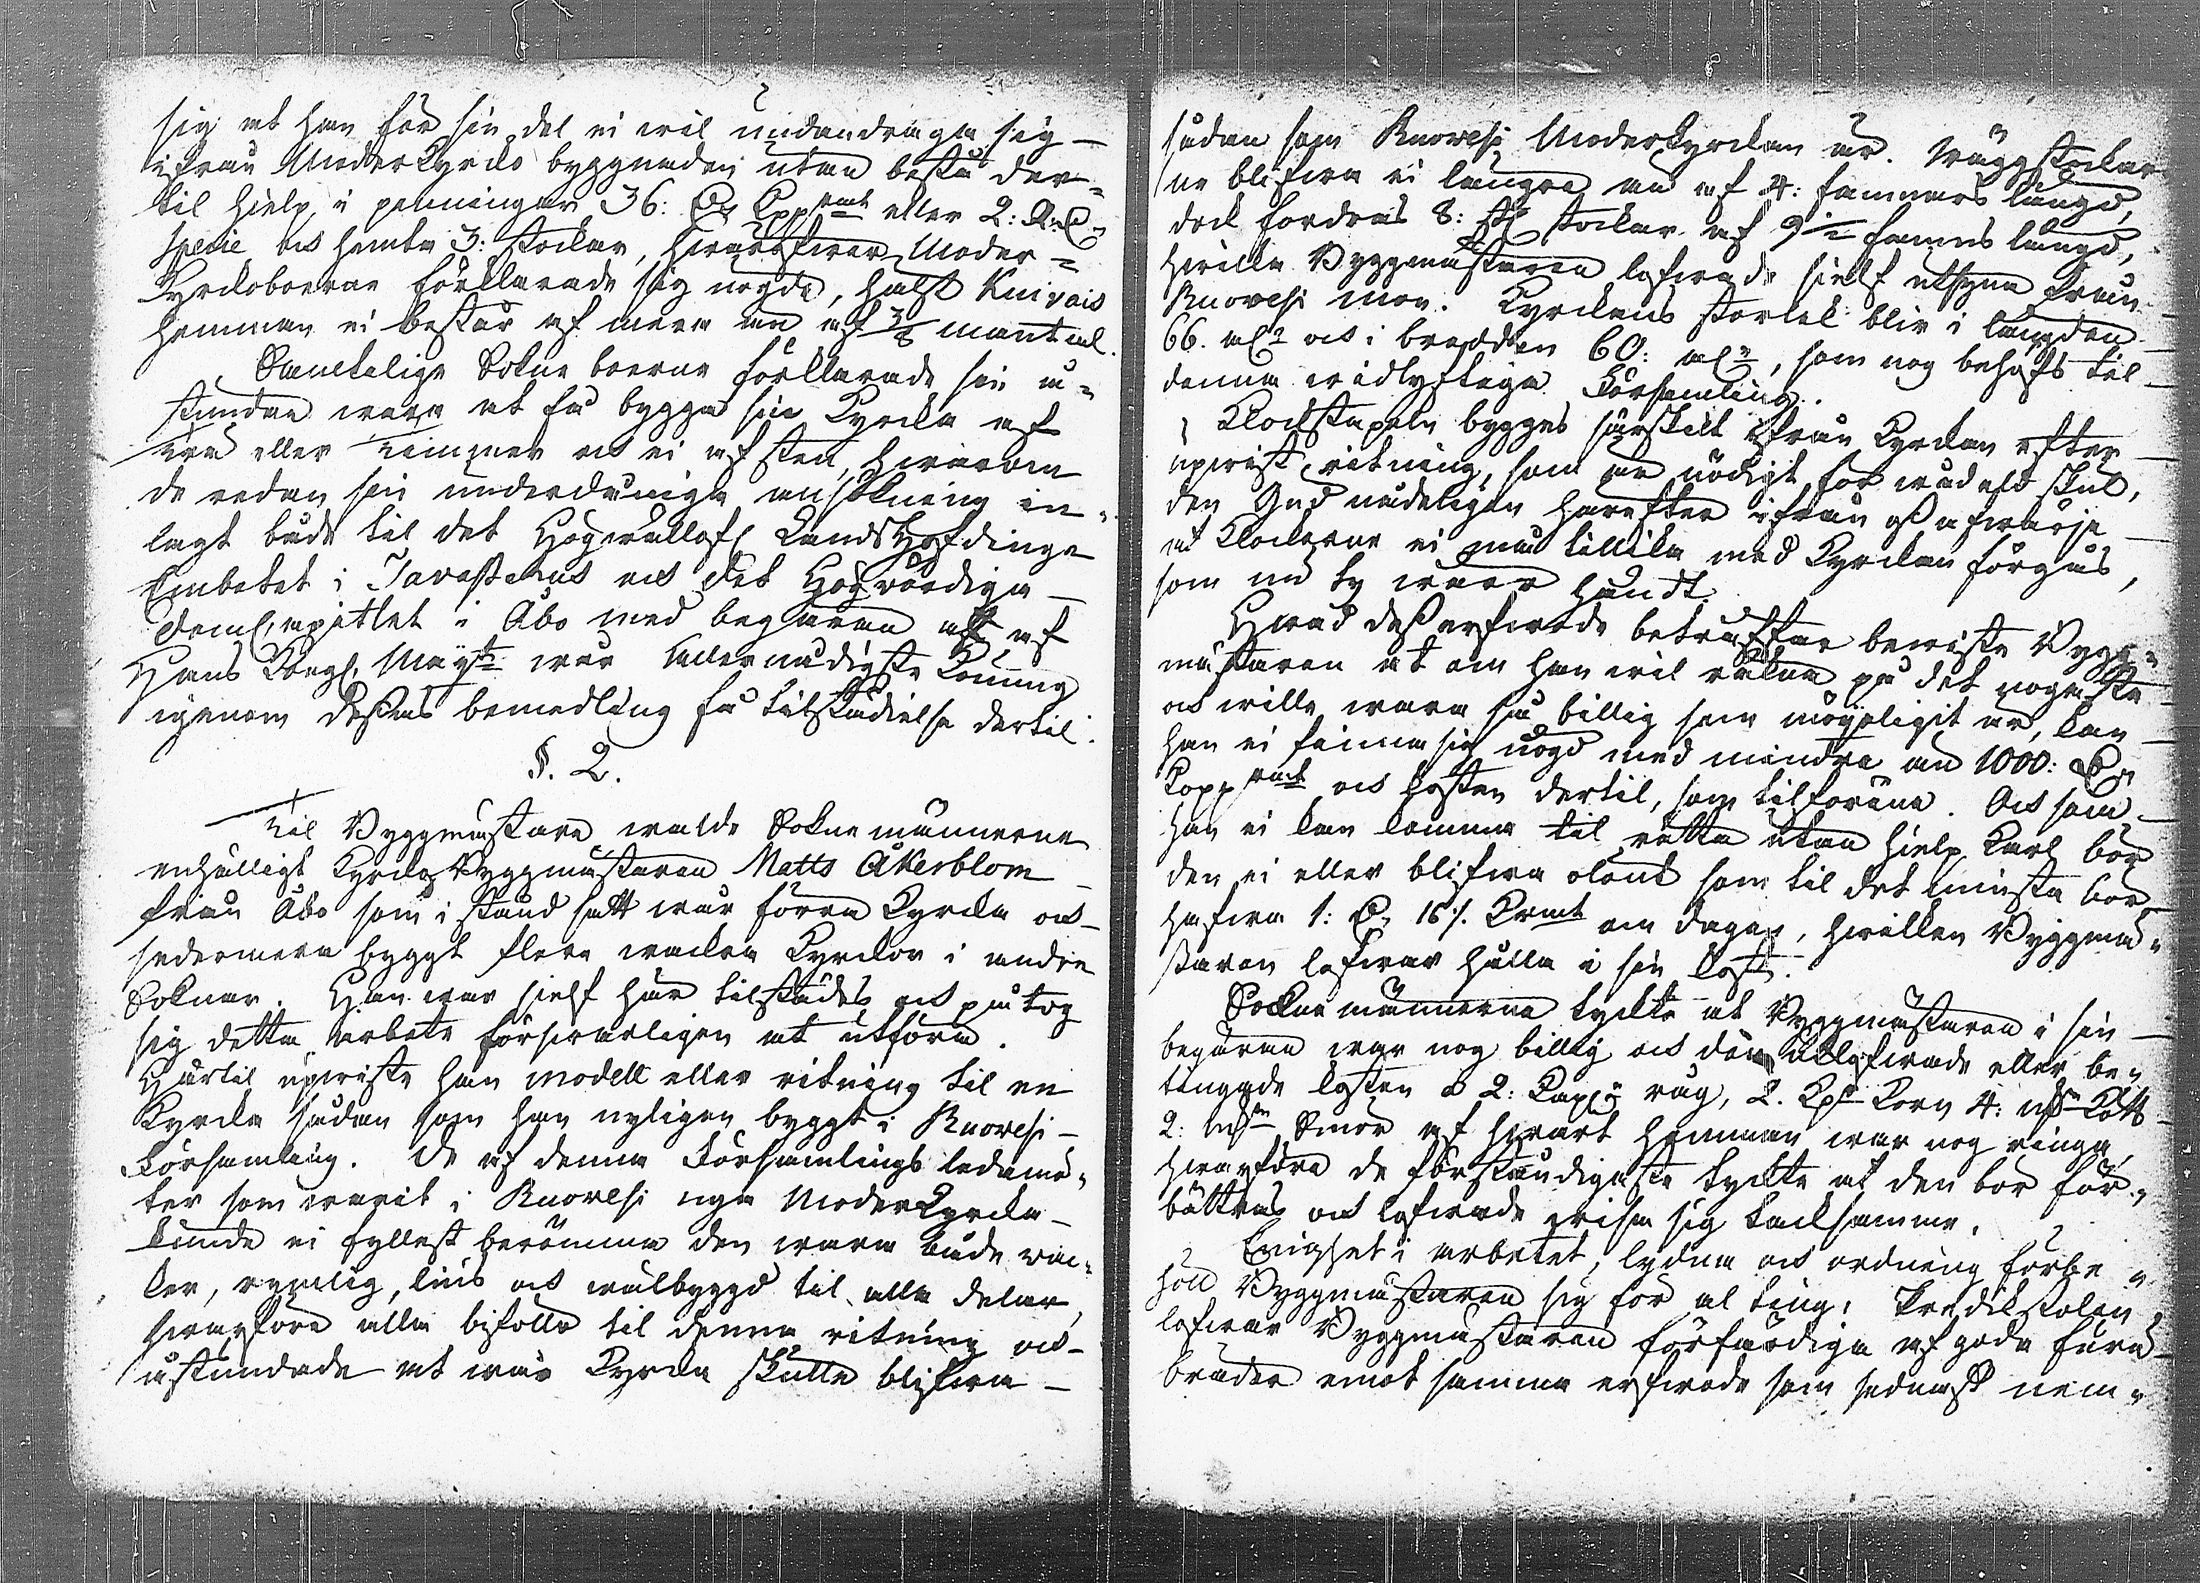 sig at han för sin del ei wil undandraga sig
ifrån Moder Kyrko byggnaden utan bestå der-
til hielp i penningar 36: D:r Kppmt eller 2: R:D:r
Specie och hemta 3: stockar, hwaröfwer Moder=
Kyrkoboerne förklarade sig nögde, hälst Knivais
hemman ei består af mera än af 3/8 mantal.
Samtelige Sokne boerne förklarade sin å-
stundan wara at få bygga sin Kyrcka af
trä eller timmer och ei af sten, hwarom
de redan sin underdåniga ansökning in-
lagt både til det Högwällofl. Landshöfdinge
Embetet i Tavastehus och det Högvördiga
Domcapitlet i Åbo med begäran att af
Hans Kongl. Maij:t wår Allernådigste Konung
igenom dessas bemedling få tilstådielse dertil.
§. 2.
Til Byggmästare walde Soknemännerne
enhälligt Kyrko Byggmästaren Matts Åkerblom
från Åbo som i stånd satt wår förra Kyrcka och
sedermera byggt flera wackra Kyrckor i andra
Soknar. Han war sielf här tilstädes och påtog
sig detta arbete förswarligen at utföra.
Härtil upwiste han modell eller ritning til en
Kyrcka sådan som han nyligen byggt i Ruovesi
Församling. De af denna Församlings ledamö-
ter som warit i Ruovesi nya Moder Kyrcka
kunde ei fyllest berömma den wara både wac-
ker, rymlig, lius och wälbyggd til alla delar,
hwarföre alla biföllo til denna ritning och
åstundade at wår Kyrcka skulle blifwa
sådan som Ruovesi Moderkyrckan är. Wäggstockar
ne blifwa ei längre än af 4: famnars längd,
dock fordras 8: st:r stockar af 9 1/2 famns längd,
hwilka Byggmästaren lofwade sielf utsyna från
Ruovesi mon. Kyrckans storlek blir i längden
66. al:r och i bredden 60: al:r, som nog behöfs til
denna widlyftiga Församling.
Klockstapeln bygges särskilt ifrån Kyrckan efter
upwist ritning, som är nödigt för wådeld skul,
den Gud nådeligen härefter ifrån oss afwärje
at Klockorne ei må tillika med Kyrckan förgås,
som nu ty wärr händt.
Hwad dess arfwode beträffar bewiste Bygg-
mästaren at om han wil räkna på det nogaste
och wille wara så billig som möijeligit är, kan
han ei finna sig nögd med mindre än 1000: D:r
Koppmt och kosten dertil, som tilförene. Och som
han ei kan komma til rätta utan hielp Karl bör
den ei eller blifwa olönt som til det minsta bör
hafwa 1: D:r 16 /. Krmt om dagen, hwilken Byggmä-
staren lofwar hålla i sin kost.
Soknemännerne tyckte at Byggmästaren i sin
begäran war nog billig och den utlofwade eller be-
tingade kosten à 2: Kap:r råg, 2. Kp:r Korn 4: m Kött
2: m Smör af hwart hemman war nog ringa,
hwarföre de förståndigaste tyckte at den bör för-
bättras och lofwade wisa sig tacksamme.
Enighet i arbetet, lydna och ordning förbe
höll Byggmästaren sig för al ting. Predikstolen
lofwar Byggmästaren förfärdiga af goda furu
bräder emot samma arfwode som sednast nem-